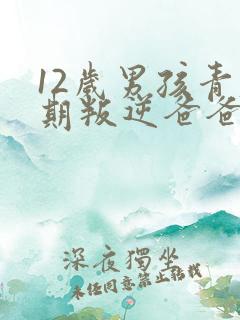 12歲男孩青
期叛逆爸爸
深夜獨坐
未经同意禁止转载